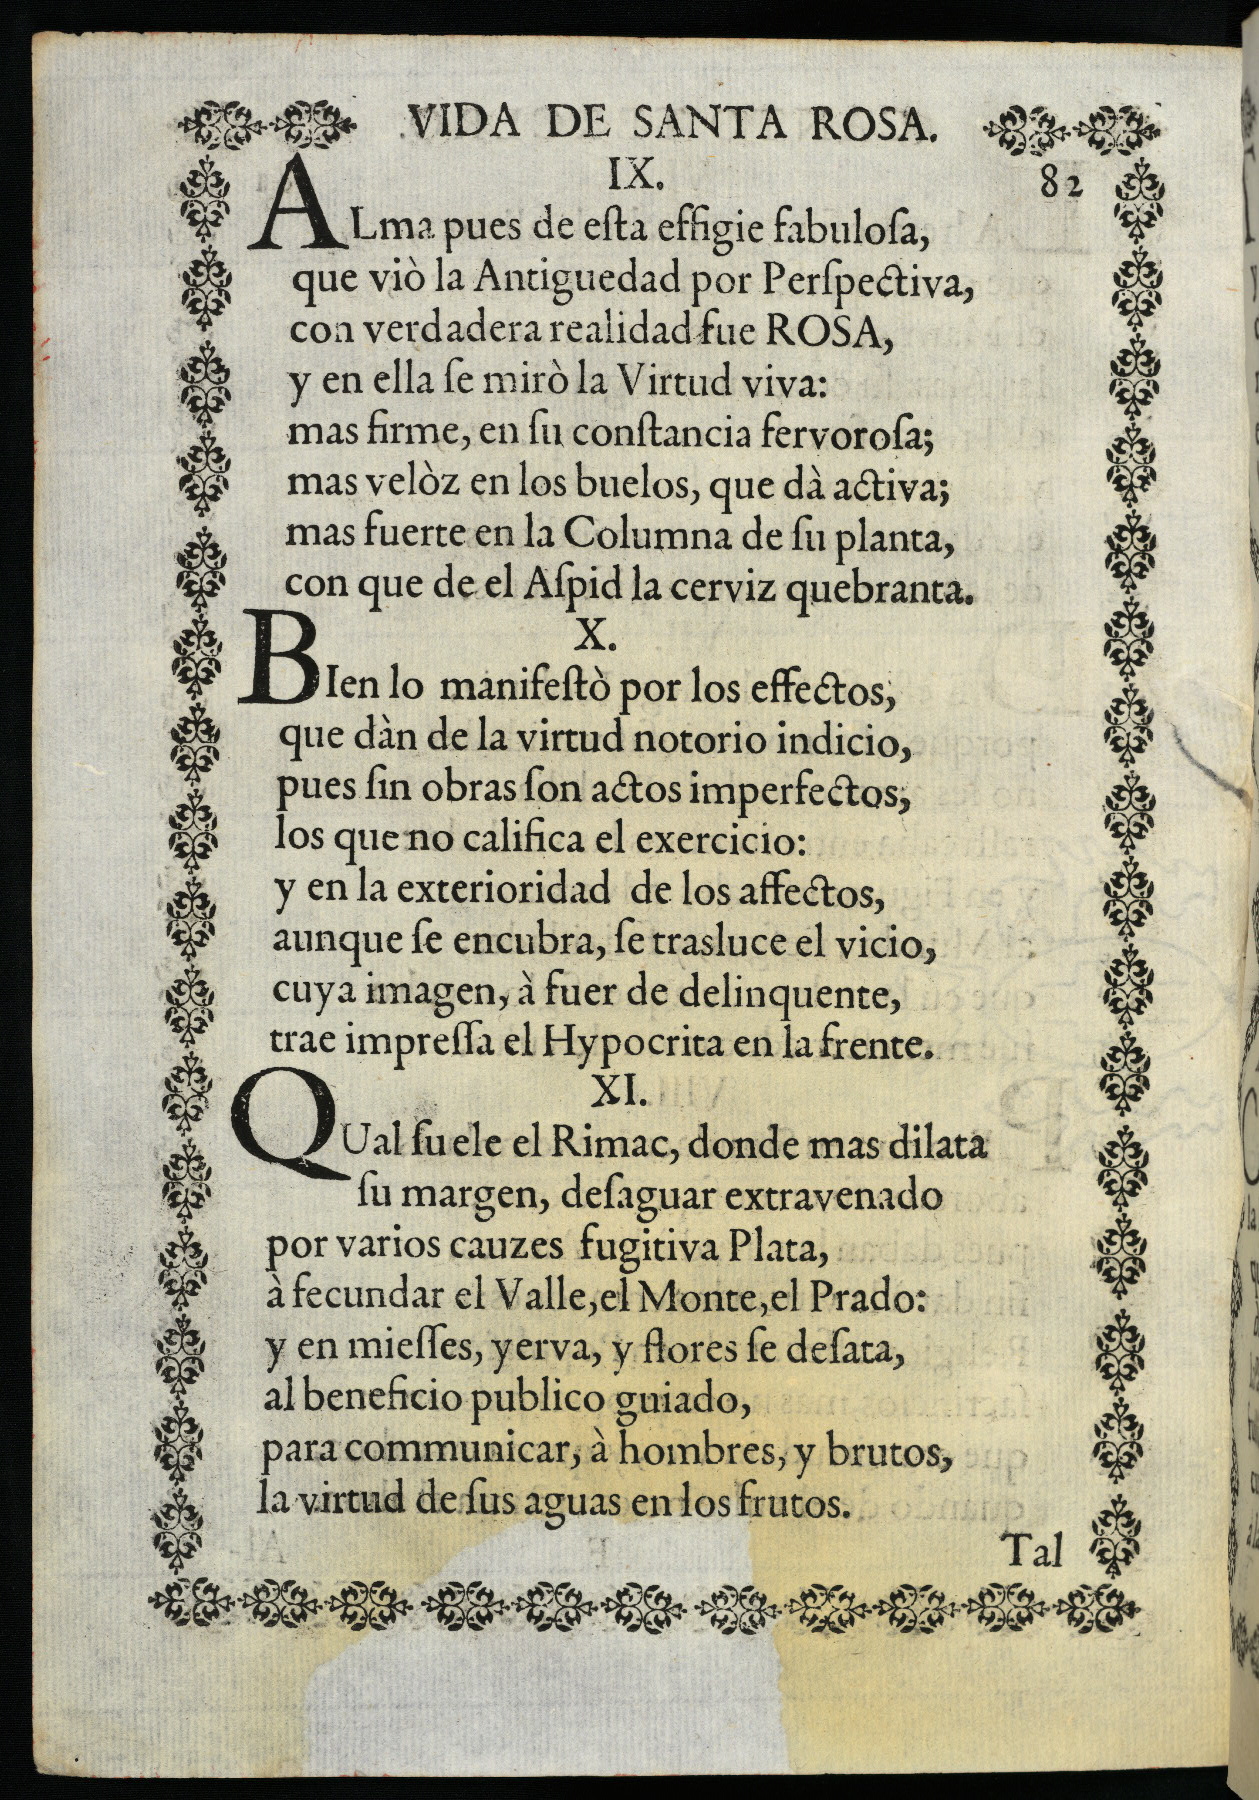 VIDA DE SANTA ROSA.
IX.
82
ALma pues de eſta effigie fabuloſa,
que viò la Antiguedad por Perſpectiva,
con verdadera realidad fue ROSA,
y en ella ſe mirò la Virtud viva:
mas firme, en ſu conſtancia fervoroſa;
mas velòz en los buelos, que dà activa;
mas fuerte en la Columna de ſu planta,
con que de el Aſpid la cerviz quebranta.
X.
BIen lo manifeſtò por los effectos,
que dàn de la virtud notorio indicio,
pues ſin obras ſon actos imperfectos,
los que no califica el exercicio:
y en la exterioridad de los affectos,
aunque ſe encubra, ſe trasluce el vicio,
cuya imagen, à fuer de delinquente,
trae impreſſa el Hypocrita en la frente.
XI.
QUal ſuele el Rimac, donde mas dilata
ſu margen, deſaguar extravenado
por varios cauzes fugitiva Plata,
à fecundar el Valle, el Monte, el Prado:
y en mieſſes, yerva, y flores ſe deſata,
al beneficio publico guiado,
para communicar, à hombres, y brutos,
la virtud de ſus aguas en los frutos.
Tal